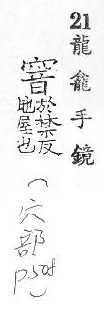 21 龍龕手鏡
窨於禁反
地屋也
(穴部
p.508)